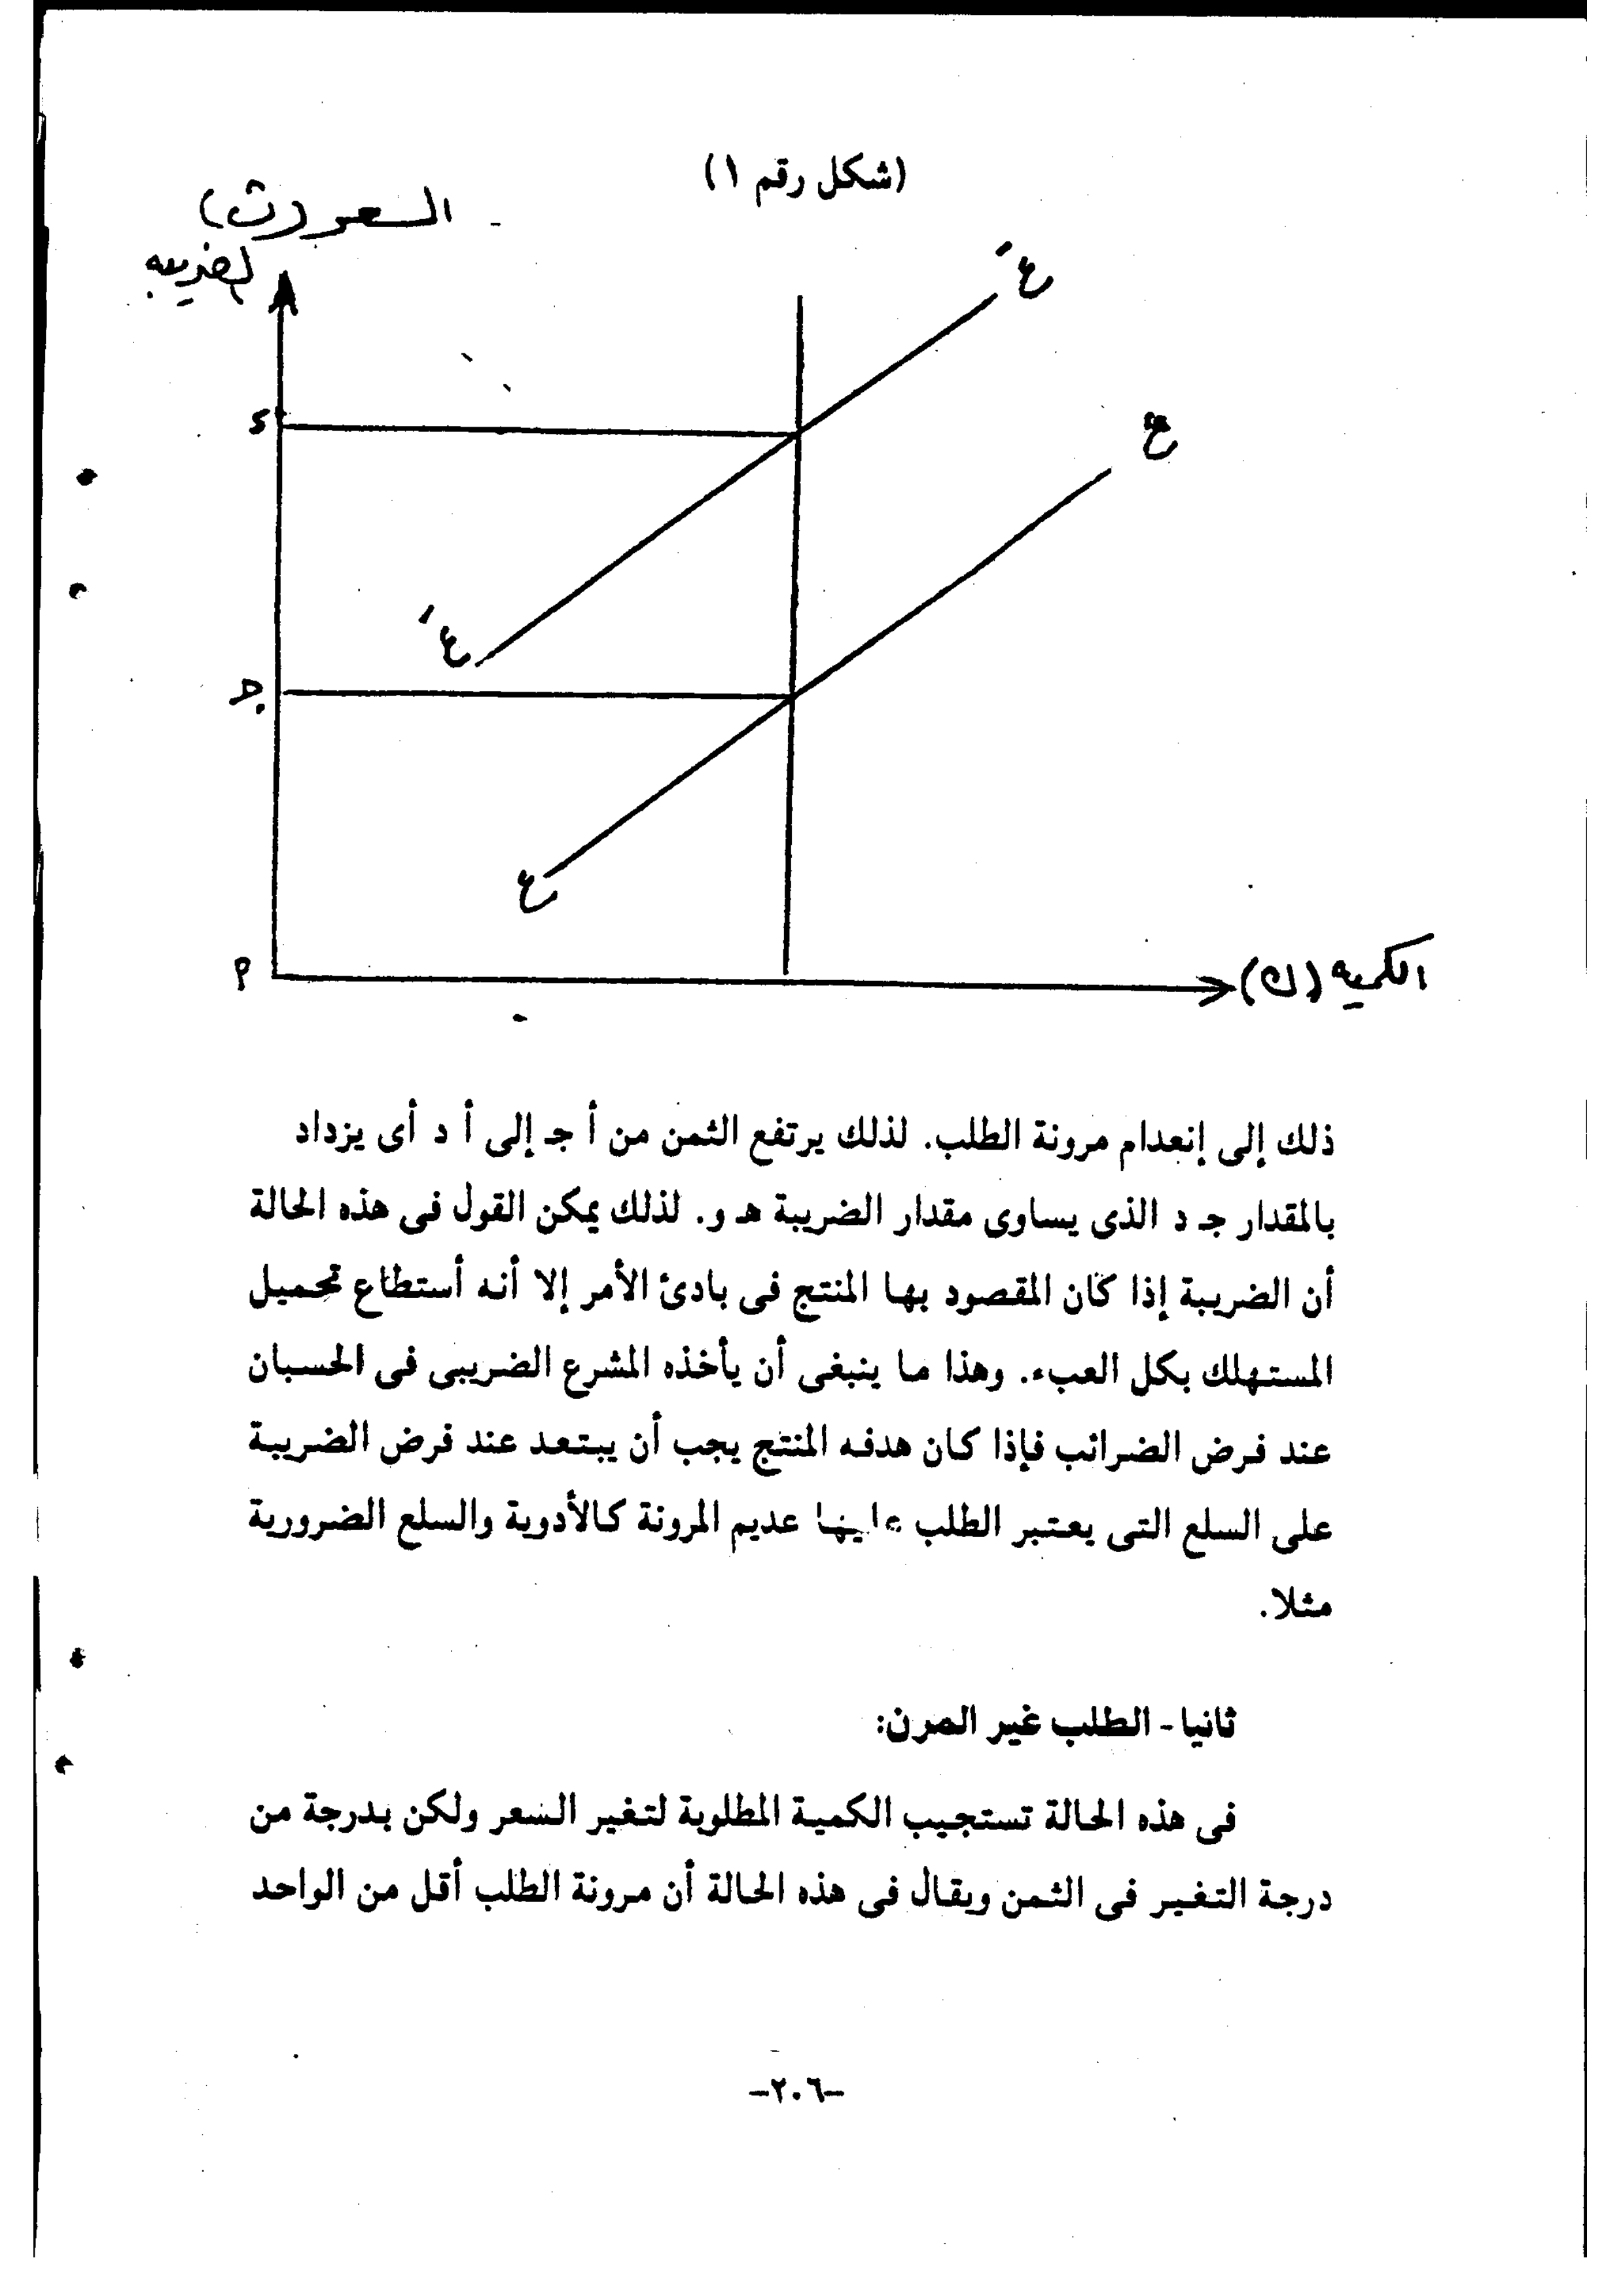 (شكل رقم ١)
السعر (ث)
الضريبه
عَ
د
ع
عَ
جـ
ع
أ
الكميه (ك)
ذلك إلى إنعدام مرونة الطلب. لذلك يرتفع الثمن من أ جـ إلى أ د أى يزداد
بالمقدار جـ د الذى يساوى مقدار الضريبة هـ و. لذلك يمكن القول فى هذه الحالة
أن الضريبة إذا كان المقصود بها المنتج فى بادئ الأمر إلا أنه أستطاع تحميل
المستهلك بكل العبء. وهذا ما ينبغى أن يأخذه المشرع الضريبى فى الحسبان
عند فرض الضرائب فإذا كان هدفه المنتج يجب أن يبتعد عند فرض الضريبة
على السلع التى يعتبر الطلب عليها عديم المرونة كالأدوية والسلع الضرورية
مثلا.
ثانيا - الطلب غير المرن:
فى هذه الحالة تستجيب الكمية المطلوبة لتغير السعر ولكن بدرجة من
درجة التغير فى الثمن ويقال فى هذه الحالة أن مرونة الطلب أقل من الواحد
-٢٠٦-